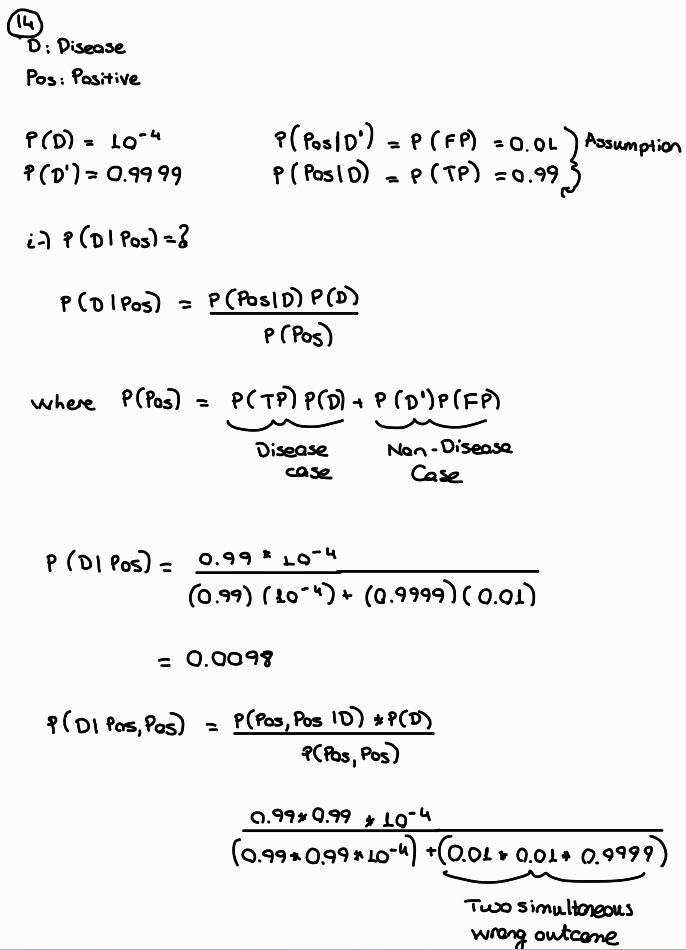 14
D: Disease
Pos: Positive
P(D) = 10⁻⁴ P(Pos|D') = P(FP) = 0.01 } Assumption
P(D') = 0.9999 P(Pos|D) = P(TP) = 0.99
i-) P(D|Pos) = ?
P(D|Pos) = P(Pos|D) P(D)
P(Pos)
where P(Pos) = P(TP) P(D) + P(D')P(FP)
Disease Non-Disease
case Case
P(D|Pos) = 0.99 * 10⁻⁴
(0.99) (10⁻⁴) + (0.9999)(0.01)
= 0.0098
P(D|Pos,Pos) = P(Pos,Pos|D) * P(D)
P(Pos,Pos)
0.99 * 0.99 * 10⁻⁴
(0.99 * 0.99 * 10⁻⁴) + (0.01 * 0.01 * 0.9999)
Two simultoneous
wrong outcome